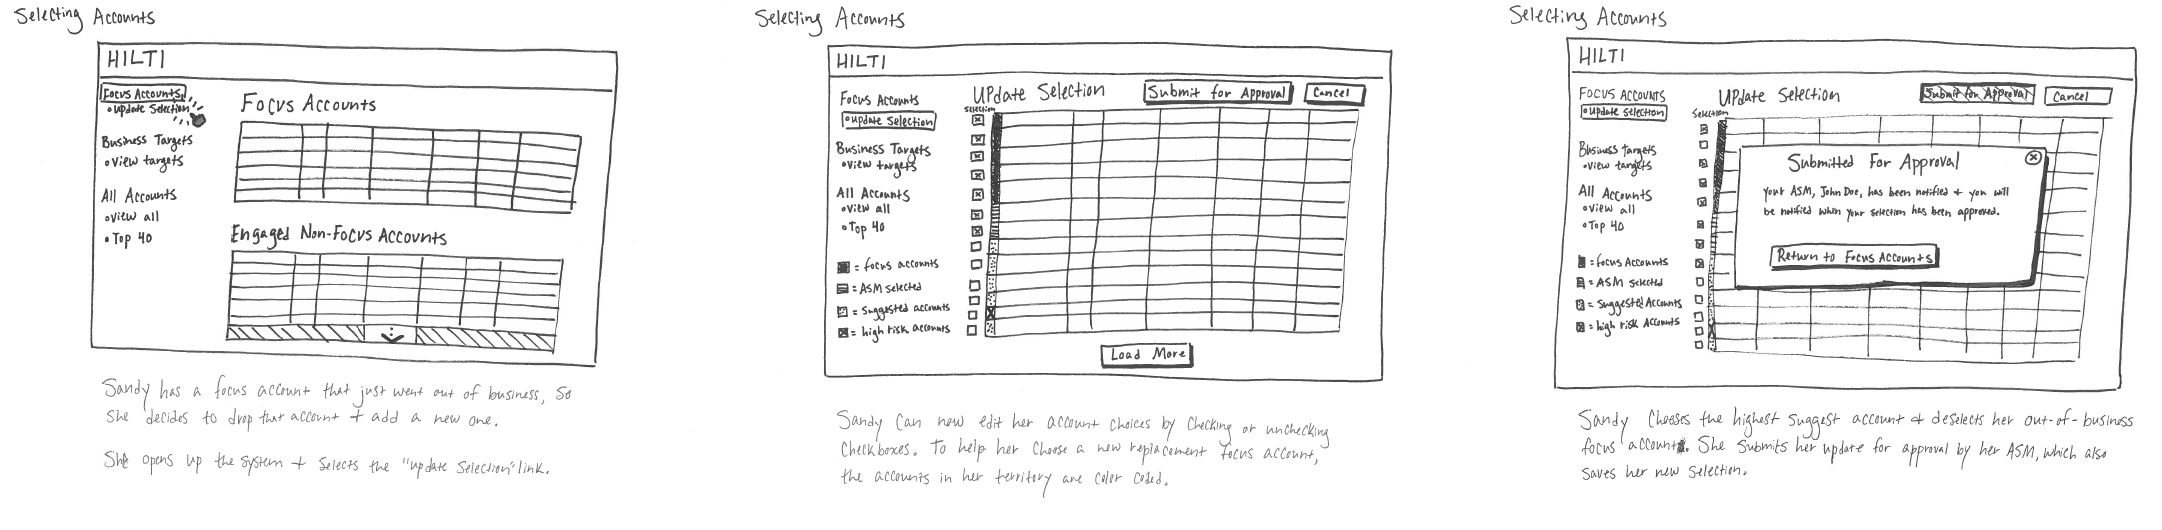 Selecting Accounts
HILTI
Focus Accounts
• update selection
Business Targets
• view targets
All Accounts
• view all
• Top 40
Focus Accounts
Engaged Non-Focus Accounts
Sandy has a focus account that just went out of business, so
she decides to drop that account + add a new one.
She opens up the system + selects the "update selection" link.
Selecting Accounts
HILTI
Focus Accounts
• update selection
Business Targets
• view targets
All Accounts
• view all
• Top 40
= focus accounts
= ASM selected
= suggested accounts
= high risk accounts
Update Selection
Submit for Approval
Cancel
Selection
Load More
Sandy can now edit her account choices by checking or unchecking
checkboxes. To help her choose a new replacement focus account,
the accounts in her territory are color coded.
Selecting Accounts
HILTI
Focus Accounts
• update selection
Business targets
• view targets
All Accounts
• view all
• Top 40
= focus Accounts
= ASM selected
= suggested Accounts
= high risk Accounts
Update Selection
Submit for Approval
Cancel
Selection
Submitted For Approval
Your ASM, John Doe, has been notified + you will
be notified when your selection has been approved.
Return to Focus Accounts
Sandy chooses the highest suggest account + deselects her out-of-business
focus account. She submits her update for approval by her ASM, which also
saves her new selection.